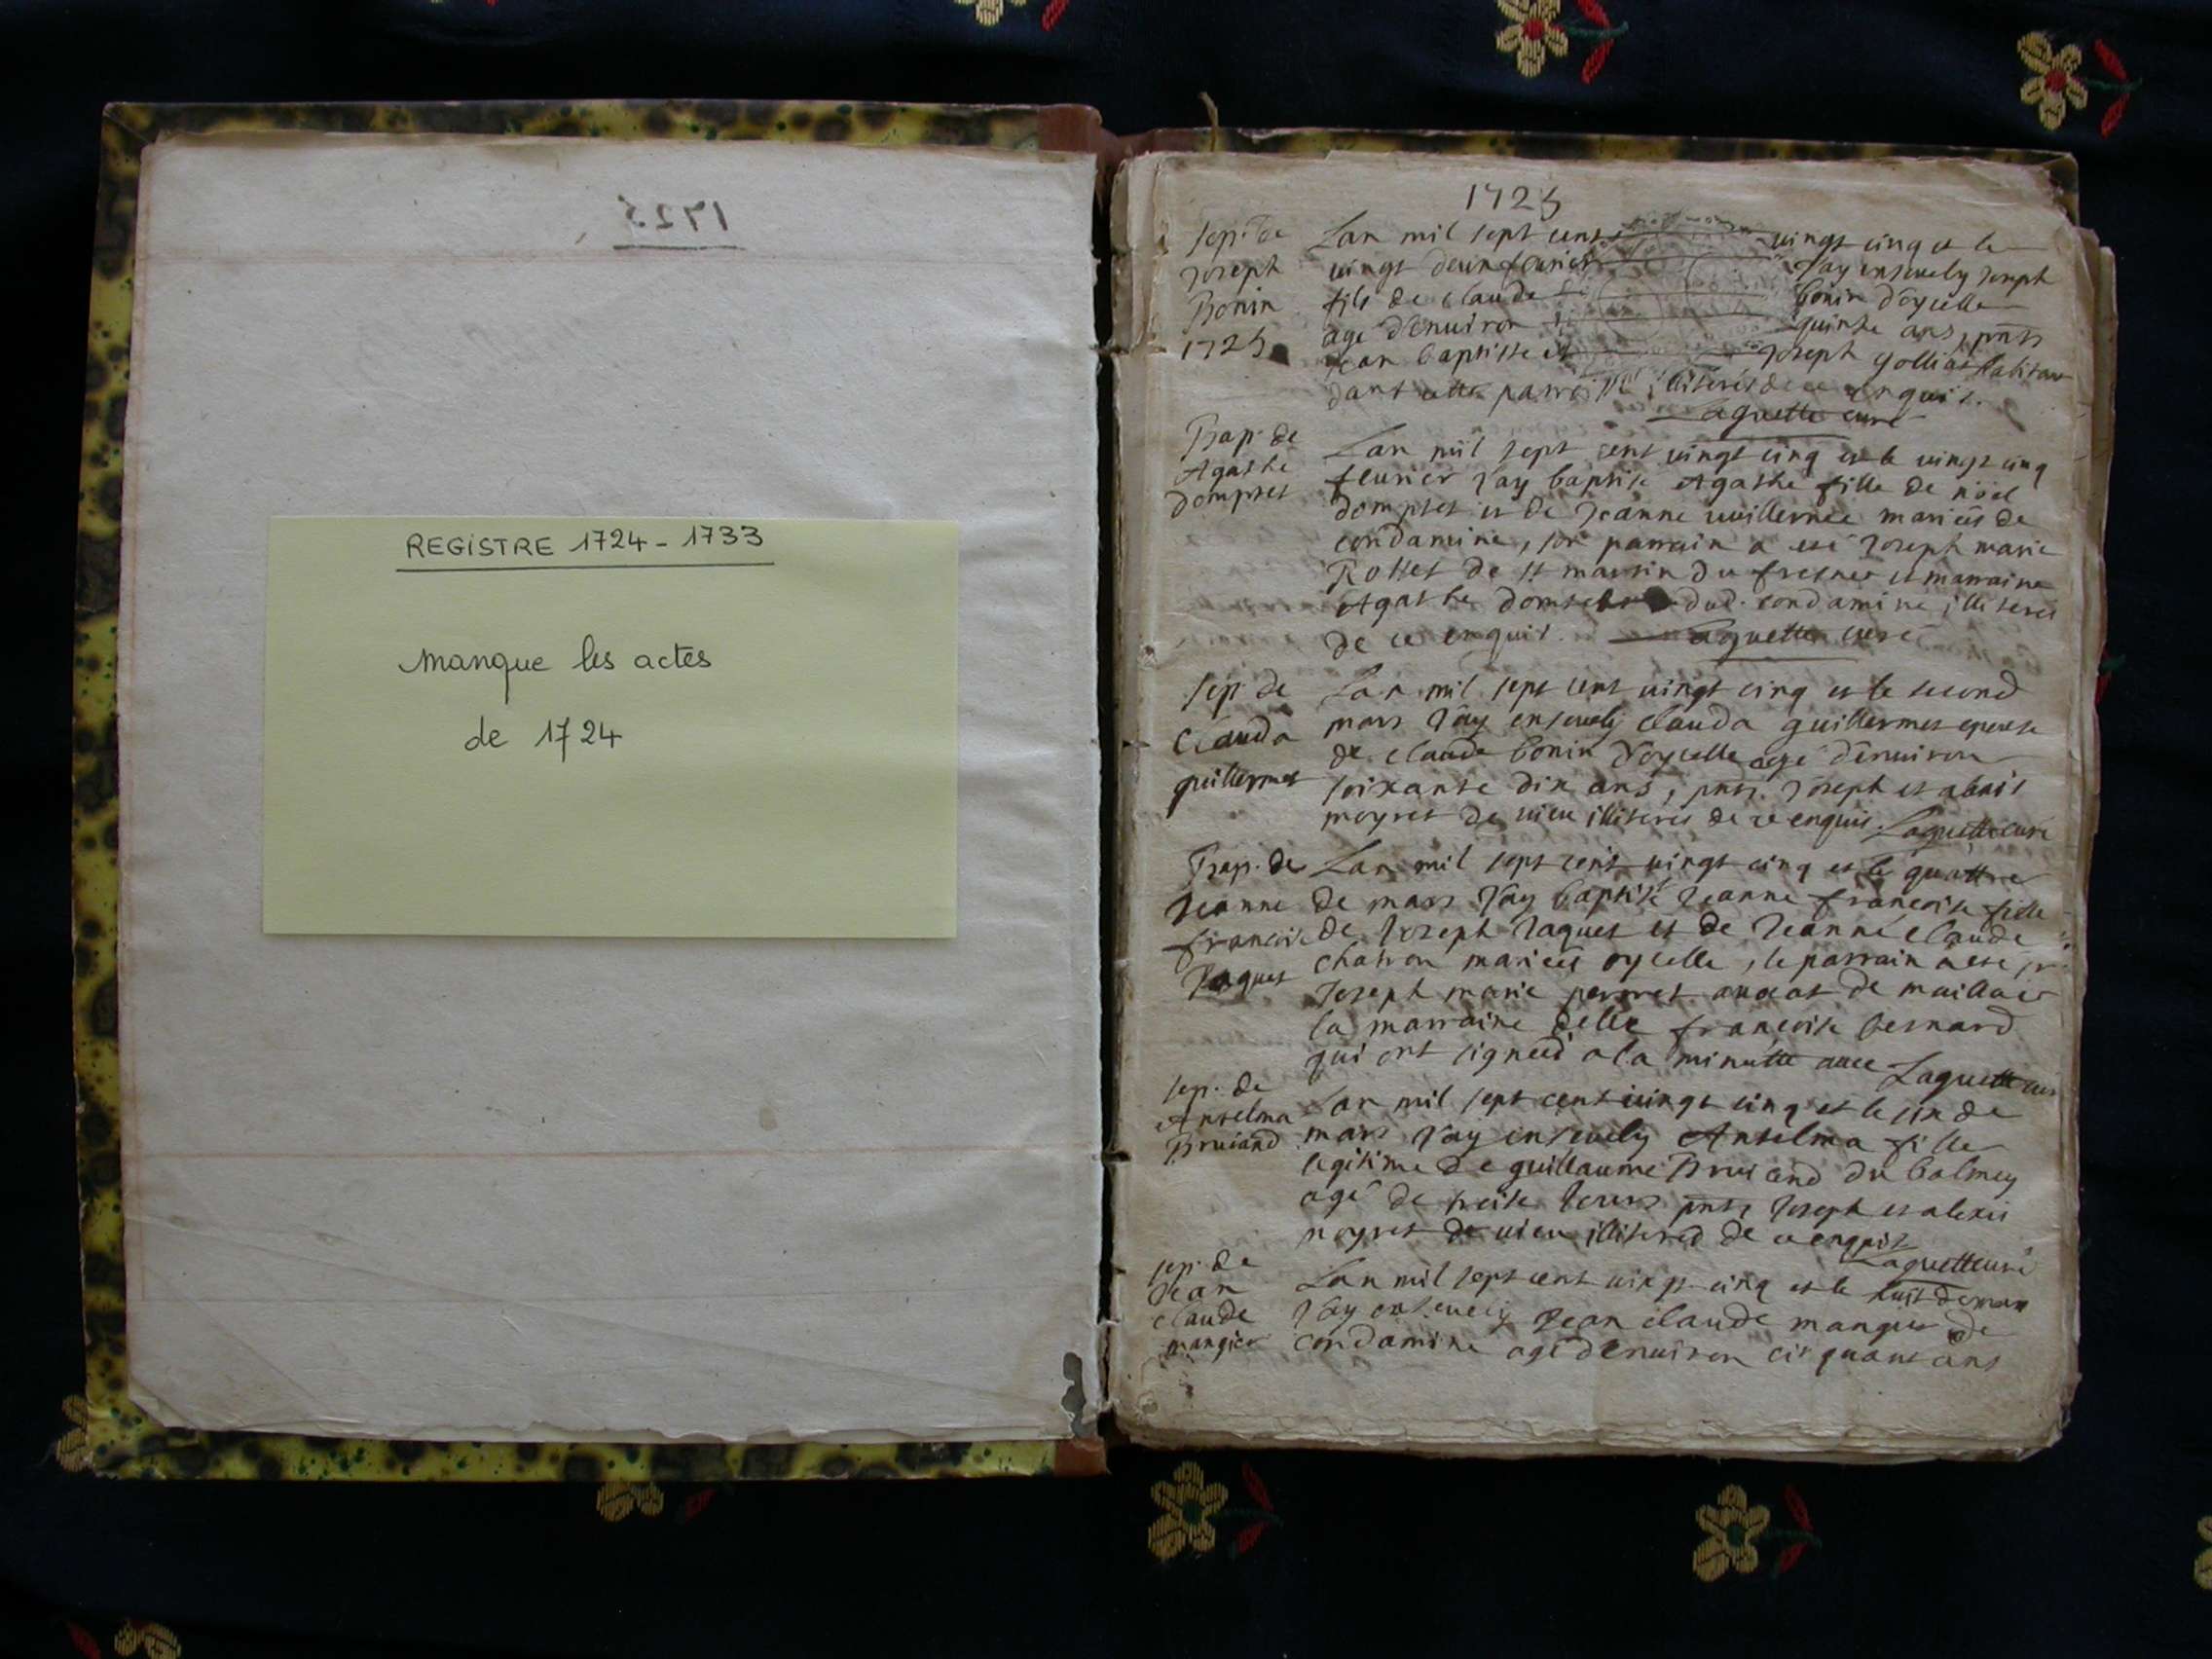 1725
REGISTRE 1724 - 1733
manque les actes
de 1724
1725
sep. de
Joseph
Bonin
1725
Lan mil sept cens vingt cinq et le
vingt deux feurier Jay enseuely Joseph
fils de claude bonin doycelle
agé denuiron quinze ans, pnts
Jean baptiste et Joseph golliat habitans
dans cette parroisse illiterés de ce enquis.
Laguette curé
Bap. de
Agathe
Domptet
Lan mil sept cent vingt cinq et le vingt cinq
feurier Jay baptisé Agathe fille de noël
domptet et de Jeanne vuillermee mariés de
condamine, son parrain a esté Joseph marie
Rottet de st martin du fresnes et marraine
Agathe dud. condamine illiterés
de ce enquis. Laguette curé
sep. de
Clauda
guillermet
Lan mil sept cent vingt cinq et le second
mars Jay enseuely clauda guillermet epouse
de claude bonin doycelle agé denuiron
soixante dix ans, pnts. Joseph et alexis
moyret de vieu illiterés de ce enquis. Laguette curé
Bap. de
Jeanne
francoise
Jaquet
Lan mil sept cent vingt cinq et le quattre
de mars Jay baptisé Jeanne francoise fille
de Joseph Jaquet et de Jeanne claude
chatron mariés oycelle, le parrain a esté sr.
Joseph marie perret auocat de maillac
la marraine delle francoise bernard
qui ont signed a la minutte auec Laguette curé
sep. de
Anselma
Bruiand
Lan mil sept cent vingt cinq et le six de
mars Jay enseuely Anselma fille
legitime de guillaume Bruiand du balmey
agé de treize Jours pnts Joseph et alexis
moyret de vieu illiteréd de ce enquis
Laguette curé
sep. de
Jean
claude
mangier
Lan mil sept cent vingt cinq et le huit de mars
Jay enseuely Jean claude mangier de
condamine agé denuiron cinquante ans